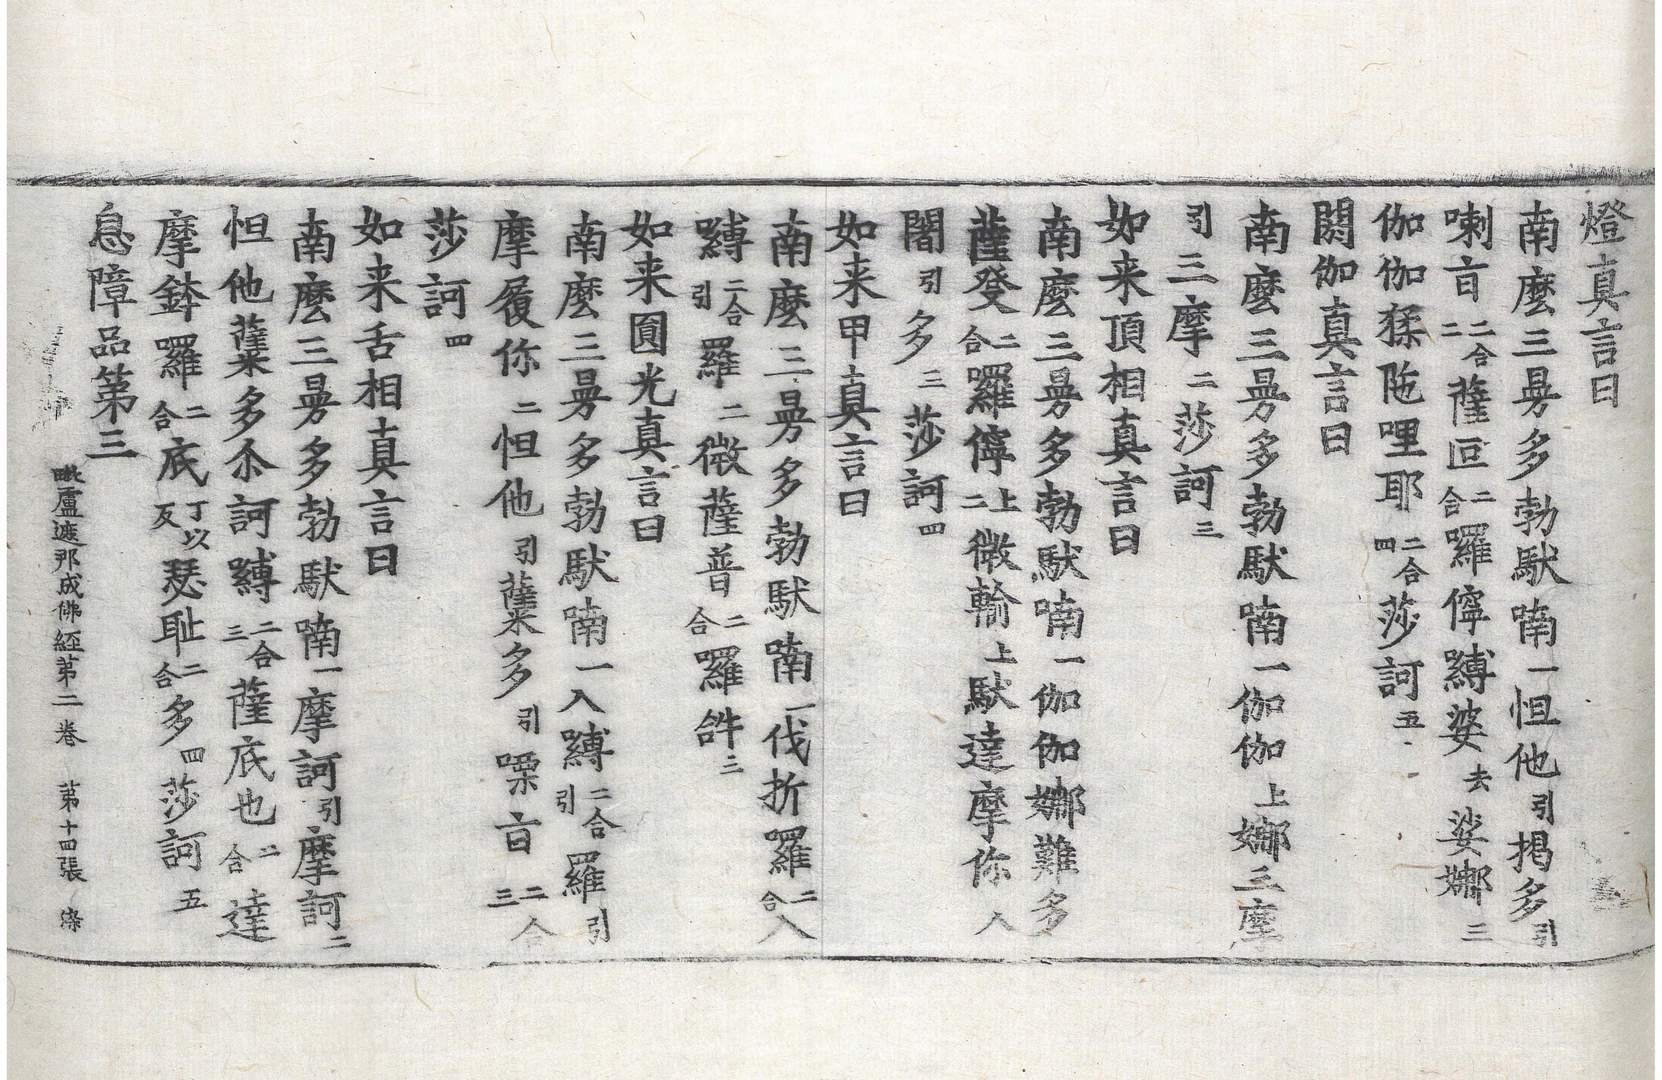 燈真言曰
南麽三曼多勃馱喃一怛他引揭多引
喇旨二合二薩叵二合囉儜縛婆去娑娜三
伽伽猱陁哩耶二合四莎訶五
閼伽真言曰
南麽三曼多勃馱喃一伽伽上娜三摩
引三摩二莎訶三
如来頂相真言曰
南麽三曼多勃馱喃一伽伽娜難多
薩發二合囉儜上二微輸上馱達摩你入
闍引多三莎訶四
如来甲真言曰
南麽三曼多勃馱喃一伐折囉二合入
縛二合引羅二微薩普二合囉𤙖三
如来圓光真言曰
南麽三曼多勃馱喃一入縛二合引羅引
摩履你二怛他引蘖多引㗚旨二合三
莎訶四
如来舌相真言曰
南麽三曼多勃馱喃一摩訶引摩訶二
怛他蘖多尒訶縛二合三薩底也二合達
摩鉢囉二合底丁以反瑟耻二合多四莎訶五
息障品第三
毗盧遮那成佛経第二卷 第十四張 染